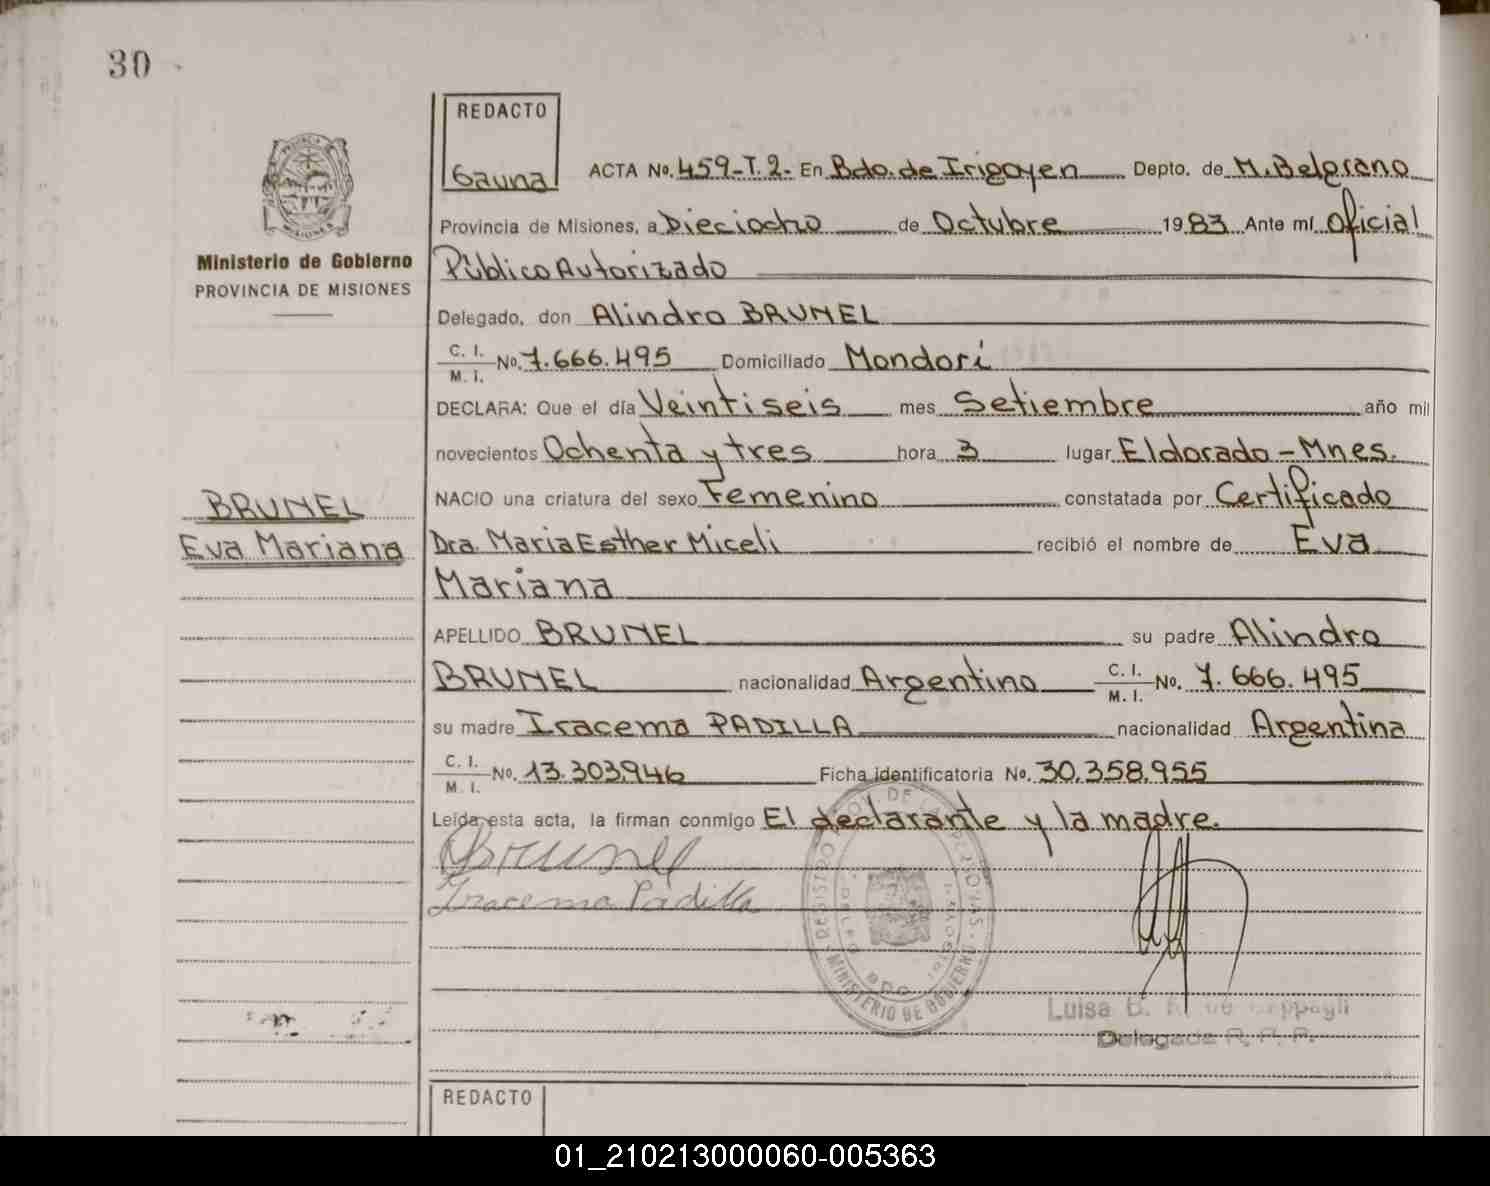 30
REDACTO
Gauna
ACTA No. 459-T.2- En Bdo. de Irigoyen Depto. de M. Belgrano
Provincia de Misiones, a Dieciocho de Octubre 1983 Ante mí Oficial
Público Autorizado
Ministerio de Gobierno
PROVINCIA DE MISIONES
Delegado, don Alindro BRUNEL
C. I. / M. I. No. 7.666.495 Domiciliado Mondorí
DECLARA: Que el día Veintiseis mes Setiembre año mil
novecientos Ochenta y tres hora 3 lugar Eldorado - Mnes.
NACIO una criatura del sexo Femenino constatada por Certificado
BRUNEL
Eva Mariana
Dra. Maria Esther Miceli recibió el nombre de Eva
Mariana
APELLIDO BRUNEL su padre Alindro
BRUNEL nacionalidad Argentino C. I. / M. I. No. 7.666.495
su madre Iracema PADILLA nacionalidad Argentina
C. I. / M. I. No. 13.303.946 Ficha Identificatoria No. 30.358.955
Leída esta acta, la firman conmigo El declarante y la madre.
Brunel
Iracema Padilla
MINISTERIO DE GOBIERNO
Luisa
Delegada R. P. P.
REDACTO
01_210213000060-005363